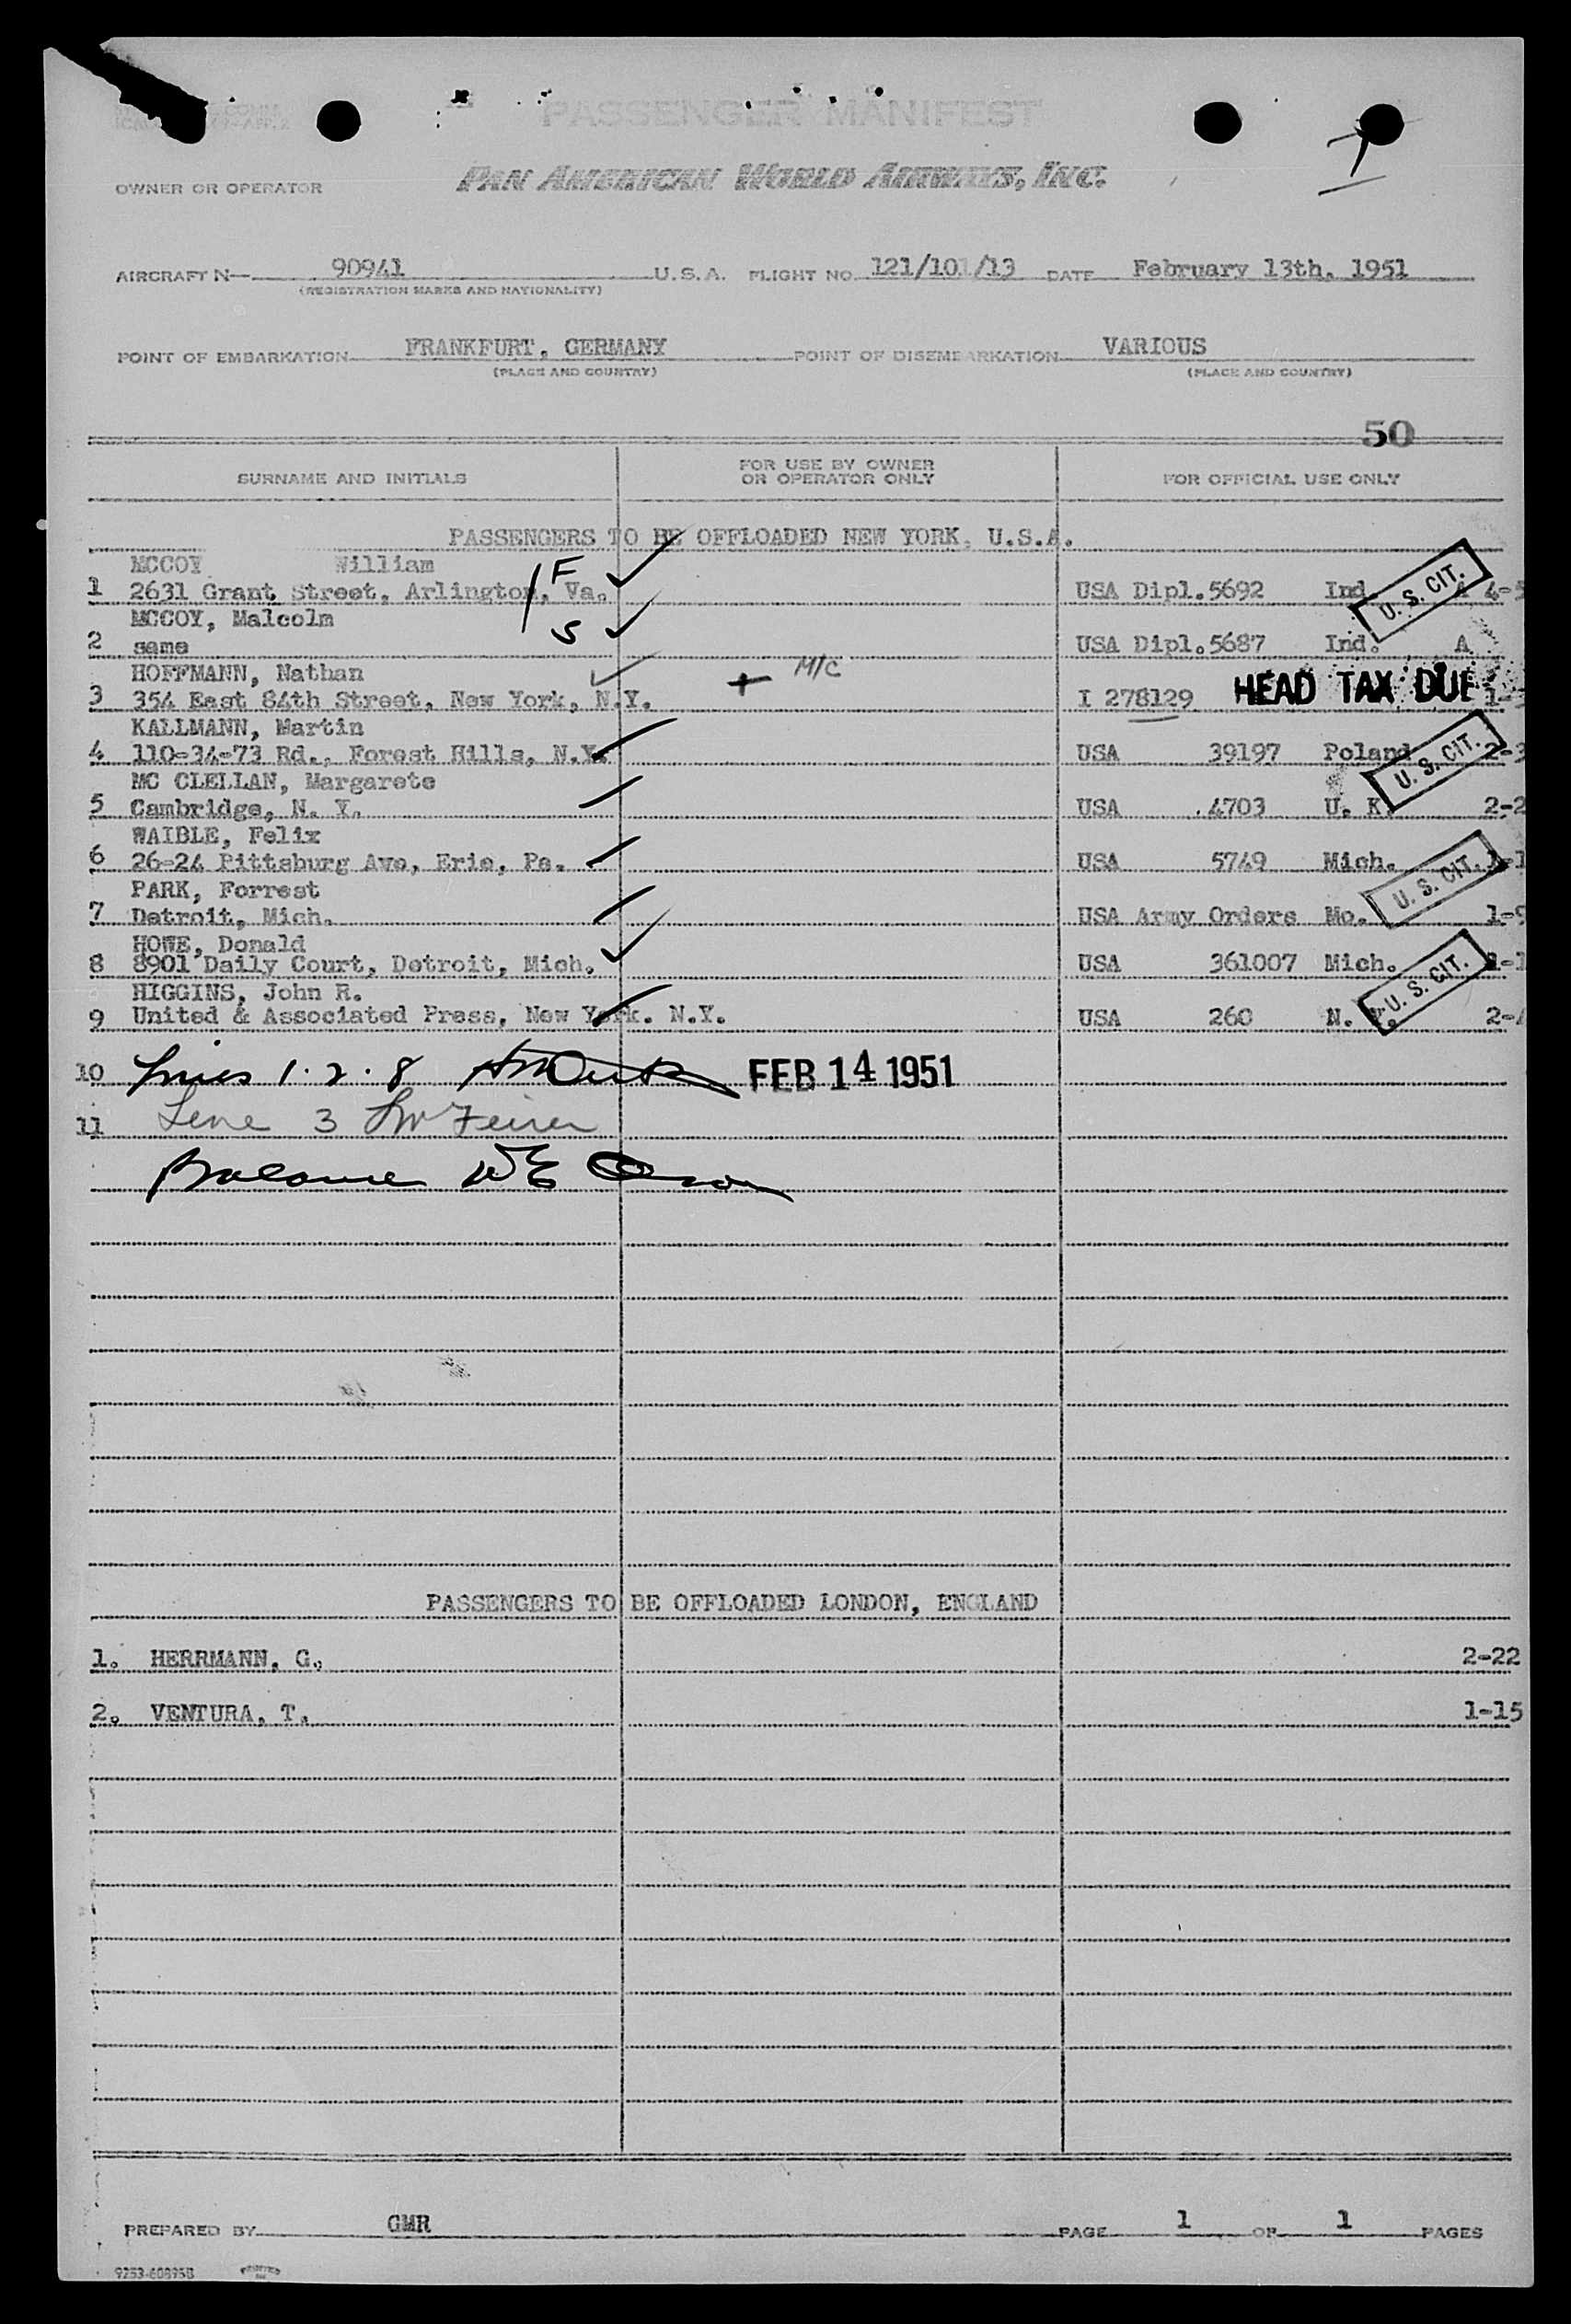 PASSENGER MANIFEST
OWNER OR OPERATOR PAN AMERICAN WORLD AIRWAYS, INC.
AIRCRAFT N— 90941 U.S.A. FLIGHT NO. 121/101/13 DATE February 13th, 1951
(REGISTRATION MARKS AND NATIONALITY)
POINT OF EMBARKATION FRANKFURT, GERMANY POINT OF DISEMBARKATION VARIOUS
(PLACE AND COUNTRY) (PLACE AND COUNTRY)
50
SURNAME AND INITIALS FOR USE BY OWNER OR OPERATOR ONLY FOR OFFICIAL USE ONLY
PASSENGERS TO BE OFFLOADED NEW YORK, U.S.A.
MCCOY William F
1 2631 Grant Street, Arlington, Va. USA Dipl.5692 Ind. A U. S. CIT.
MCCOY, Malcolm S
2 same USA Dipl.5687 Ind. A
HOFFMANN, Nathan + M/C
3 354 East 84th Street, New York, N.Y. I 278129 HEAD TAX DUE
KALLMANN, Martin
4 110-34-73 Rd., Forest Hills, N.Y. USA 39197 Poland U. S. CIT. 2-3
MC CLELLAN, Margarete
5 Cambridge, N. Y. USA 4703 U. K. 2-2
WAIBLE, Felix
6 26-24 Pittsburg Ave, Erie, Pa. USA 5749 Mich. U. S. CIT. 1-1
PARK, Forrest
7 Detroit, Mich. USA Army Orders Mo. 1-9
HOWE, Donald
8 8901 Daily Court, Detroit, Mich. USA 361007 Mich. U. S. CIT.
HIGGINS, John R.
9 United & Associated Press, New York. N.Y. USA 260 N. Y.
10 Lines 1. 2. 8 FEB 14 1951
11 Line 3
Balance
PASSENGERS TO BE OFFLOADED LONDON, ENGLAND
1. HERRMANN, G. 2-22
2. VENTURA, T. 1-15
PREPARED BY GMR PAGE 1 OF 1 PAGES